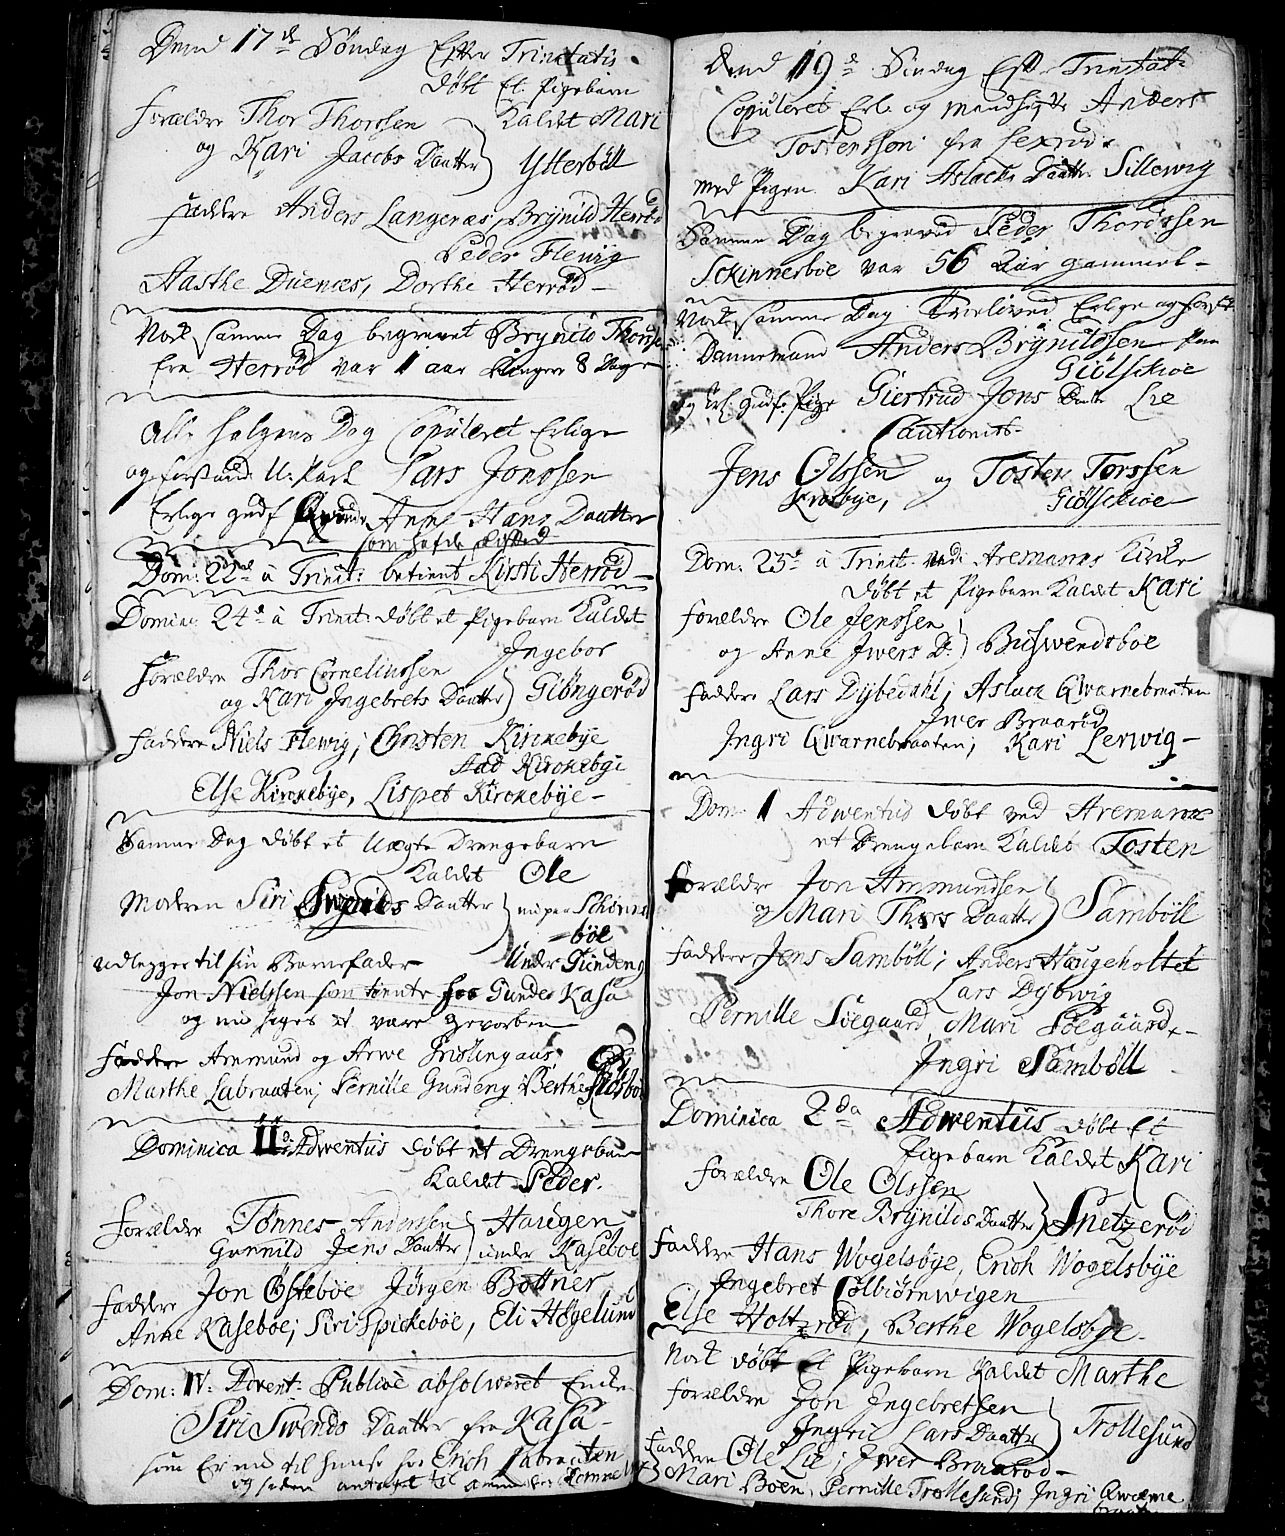 Dend 17de Söndag Efter Trinitatis
döbt Et Pigebarn
forældre Thor Thorssen Kaldet Mari
og Kari Jacobs Daatter Ytterböll
faddre Anders Langenæs, Brynild Herröd
Peder Flewig
Aasthe Duenæs, Dorthe Herröd
Nock samme Dag begravet Brynild
fra Herröd var 1 aar 8 Dage
Alle helgens Dag Copuleret Erlige
og Karl Lars Jonssen
Erlige gudf Anne Hans Daatter
som hafde
Dom: 22de à Trinit: betient Kirsti Herröd
Domin: 24de à Trinit: döbt et Pigebarn Kaldet
Ingebor
Forældre Thor Corneliussen
og Kari Ingebrets Daatter Giöngeröd
faddere Niels Flewig, Christen Kirckebye
Aad Kirckebye
Else Kirckebye, Lispet Kirckebye
Samme Dag döbt et Uægte Drengebarn
Kaldet Ole
Moderen Siri Daatter
böe
udlegger til sin Barnefader Under Gundeng
Jon Nielssen som tiente hos Gunder Kasa
og nu siges at være gevorben
Faddere Ammund og Arwe
Marthe Labraaten, Pernille Gundeng, Berthe
Dominica II Adwentus döbt et Drengebarn
Kaldet Peder.
Forældre Tönnes Anderssen Haugen
Gunnild Jens Daatter under Kaseboe
Faddere Jon Östeböe Jörgen Bottner
Anne Kaseböe, Siri Spickeböe, Eli Högelund
Dom: IV: Advent: Publicè absolveret
Siri Swends Daatter fra Kasa
som Er nu til huse hos Erich Labraaten
og siden antaget til
Dend 19de Söndag Efter Trinitat:
Copuleret Erl: og Mandhafte Anders
Tostenssön fra
med Pigen Kari Aslachs Daatter Sillewig
Samme Dag begravet Peder Thordssen
Sckinnerboe var 56 Aar gammel
Nock samme Dag Troeloved Erlige og
Dannemand Anders Brynildssen
Giölsckoe
og Erl: gudf: Pige Giertrud Jons Daatter Lie
Cautionits
Jens Olssen og Tosten Torssen
Krosbye, Giölsckoe
Dom: 23de à Trinit: ved Aremarks Kircke
döbt et Pigebarn Kaldet Kari
forældre Ole Jenssen
og Anne Iwers D: Buswendsboe
faddere Lars Dybedahl, Aslack Qwarnebraaten
Iwer Braaröd
Ingri Qwarnebraaten, Kari Lerwig
Dom: 1 Adwentus döbt ved Aremarck
et Drengebarn Kaldet Tosten
Forældre Jon Ammundsen
og Mari Thors Daatter Samböll
faddere Jens Samböll, Anders Haugeholtet
Lars Dybwig
Pernille Söegaard, Mari Söegaard,
Ingri Samböll
Dominica 2da Adwentus döbt Et
Pigebarn Kaldet Kari
Forældre Ole Olssen
Thore Brynilds Daatter Snetzeröd
Faddere Hans Wogelsbye, Erich Wogelsbye
Ingebret Colbiörnwigen
Else Holtzröd, Berthe Wogelsbye.
Nock döbt et Pigebarn Kaldet Marthe
forældre Jon Ingebretsen
Ingri Lars Daatter Trollesund
Faddere Ole Lie, Iwer Braaröd
Mari Boen, Pernille Trollesund, Ingri Qwarne